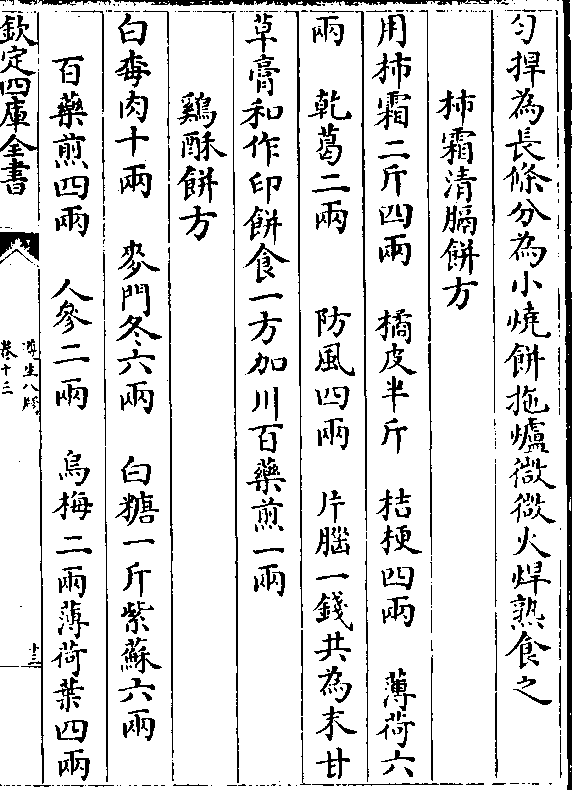 匀捍為長條分為小燒餅拖爐微微火焊熟食之
柿霜清膈餅方
用柿霜二斤四兩 橘皮半斤 桔梗四兩 薄荷六
兩 乾葛二兩 防風四兩 片腦一錢共為末甘
草膏和作印餅食一方加川百藥煎一兩
鷄酥餅方
白梅肉十兩 麥門冬六兩 白糖一斤紫蘇六兩
百藥煎四兩 人參二兩 烏梅二兩薄荷葉四兩
欽定四庫全書
遵生八牋
卷十三
十三